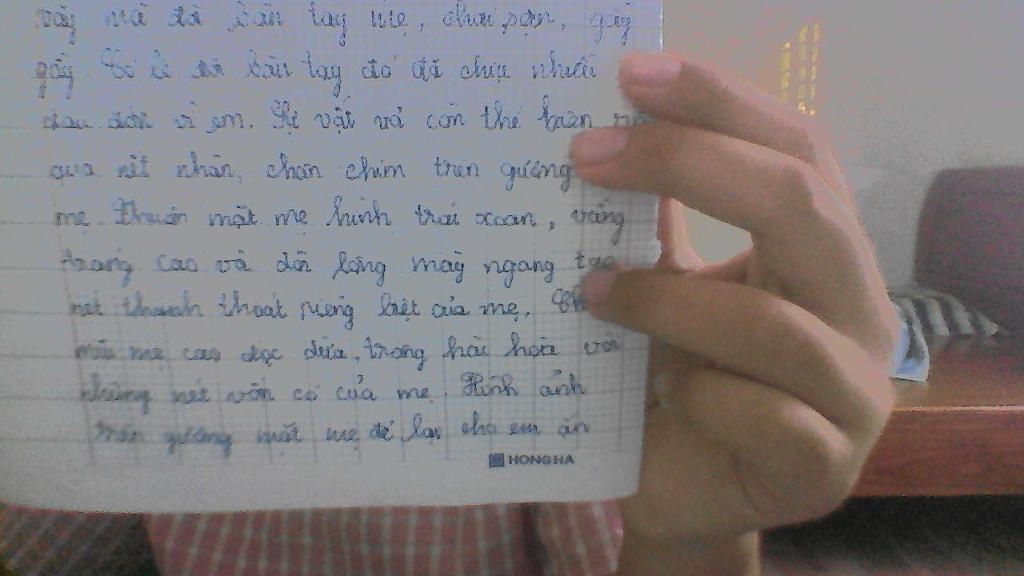 vậy mà đôi bàn tay mẹ, chai sạn, gầy
gầy. Có lẽ đôi bàn tay đó đã chịu nhiều
đau đớn vì em. Sự vất vả còn thể hiện
qua nét nhăn, chân chim trên gương
mẹ. Khuôn mặt mẹ hình trái xoan, vầng
trang cao và đôi lông mày ngang tạo
nét thanh thoát riêng biệt của mẹ.
mũi mẹ cao dọc dừa, trông hài hoà với
những nét vốn có của mẹ. Hình ảnh
trên gương mặt mẹ để lại cho em ấn
HONG HA